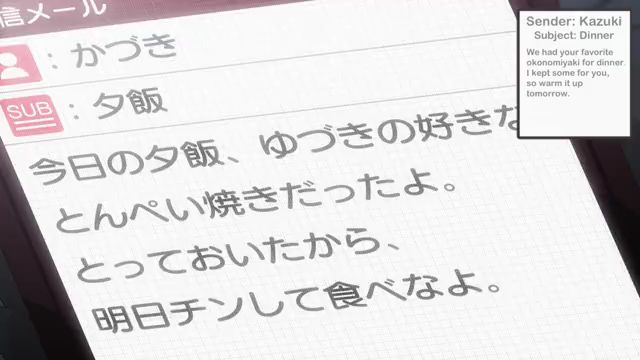 信メール
: かづき
SUB : 夕飯
今日の夕飯、ゆづきの好きな
とんぺい焼きだったよ。
とっておいたから、
明日チンして食べなよ。
Sender: Kazuki
Subject: Dinner
We had your favorite
okonomiyaki for dinner.
I kept some for you,
so warm it up
tomorrow.